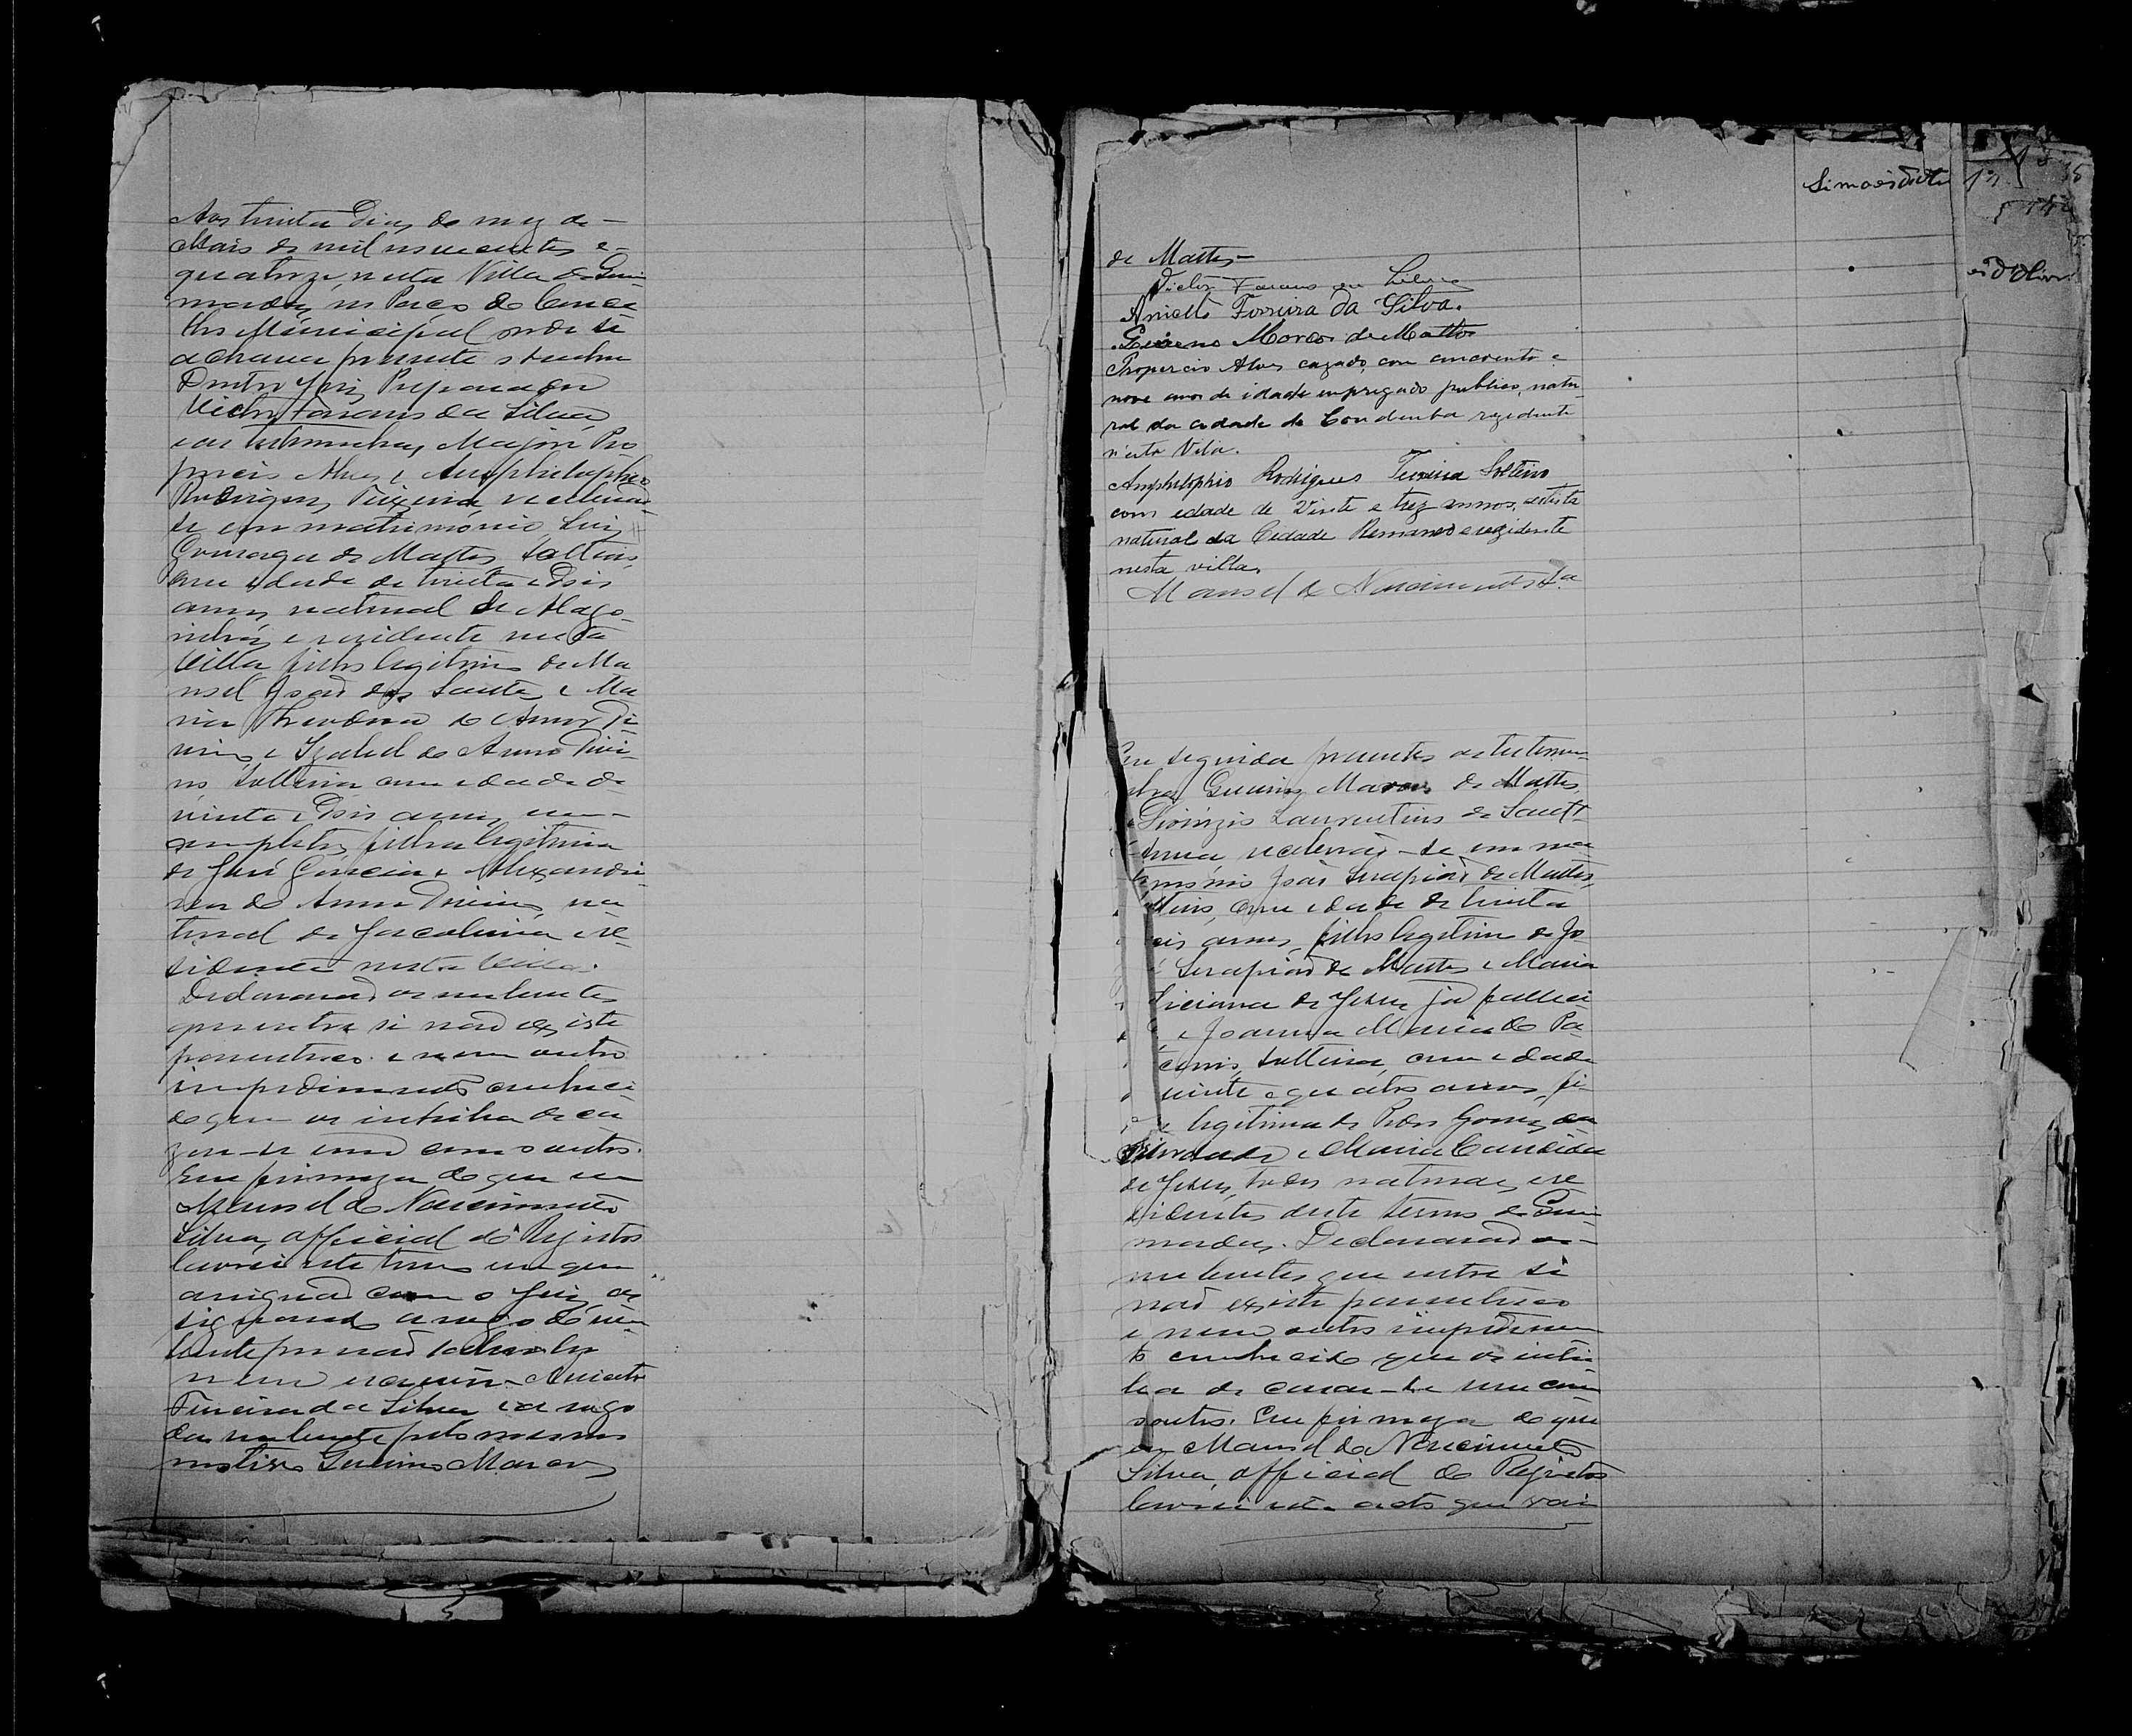 Aos trinta dias do mez de
Maio de mil novecentos e
quatorze, nesta Villa de Gui
marães, no Paço do Conce
lho Municipal onde se
achava presente o Senhor
Doutor Juiz Preparador
Victor Farans da Silva,
e as testemunhas, Major Pro
percio Alves e Amphilophio
Rodrigues Teixeira receberão
se em matrimónio, Luiz
Gonzaga de Mattos, solteiro,
com edade de trinta e dois
annos, natural de Alago
inhas, e rezidente nesta
Villa filho legitimo de Ma
noel João dos Santos e Ma
ria Theodora do Amor Di
vino, e Izabel do Amor Divi
no solteira com edade de
vinte e dois annos in-
completos, filha legitima
de José Garcia e Alexandri
na do Amor Divino, na
tural de Jacobina e re
sidente nesta Villa.
Declararão os nubentes
que entre si não existe
parentesco e nem outro
impedimento conheci
do que os inhiba de ca
zar-se um com o outro.
Em firmeza do que eu
Manoel do Nascimento
Silva, official do Registro
lavrei este termo em que
assignão com o Juiz, as
signando a rogo do nu
bente por não saber ler
nem escrever Aniceto
Ferreira da Silva e a rogo
da nubente pelo mesmo
motivo Guirino Marcos
de Mattos-
Victor Farans da Silva
Anicetto Ferreira da Silva.
Guirino Marcos de Mattos
Propercio Alves cazado, com cincoenta e
nove annos de idade empregado publico, natu
ral da cidade de Condeuba rezidente
n'esta Villa.
Amphilophio Rodrigues Teixeira Solteiro
com edade de Vinte e trez annos, artista
natural da Cidade Remanso e rezidente
nesta villa.
Manoel do Nascimento Sa
Em seguida presentes as testemu
nhas Guirino Marcos de Mattos
e Dionizio Laurentino de Sant
Anna receberão-se em ma
trimonio João Serapião de Mattos,
solteiro, com edade de trinta
annos, filho legitimo de Jo
Serapião de Mattos e Maria
Feliciana de Jesus já falleci
e Joanna Maria do Pa
solteira, com edade
vinte e quatro annos, fi
legitima de Pedro Gomes da
e Maria Candida
de Jesus, todos naturaes e re
sidentes deste termo de Gui
marães. Declararão os
nubentes que entre si
não existe parentesco
e nem outro impedimen
to conhecido que os inhi
ba de cazar-se um com
o outro. Em firmeza do que
eu Manoel do Nascimento
Silva, official do Registro
lavrei este acto que vai
Simões